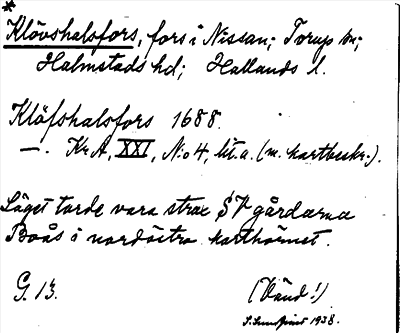 *
Klövshalsfors, fors i Nissan; Torup sn;
Halmstads hd; Hallands l.
Klöfshalsfors 1688.
—. Kr.A, XXI, N:o 4, lit. a. (m. kartbeskr.).
Läget torde vara strax SV gårdarna
Boås i nordöstra karthörnet.
G. 13.
(Vänd!)
1938.